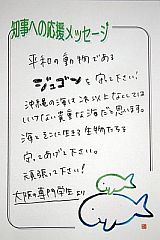 知事への応援メッセージ
平和の動物である
ジュゴンを守して下さい!
沖縄の海はこれ以上なくしては
いけない貴重な海だと思います。
海とそこに生きる生物たちを
守ってあげて下さい。
頑張って下さい!
大阪の専門学生より